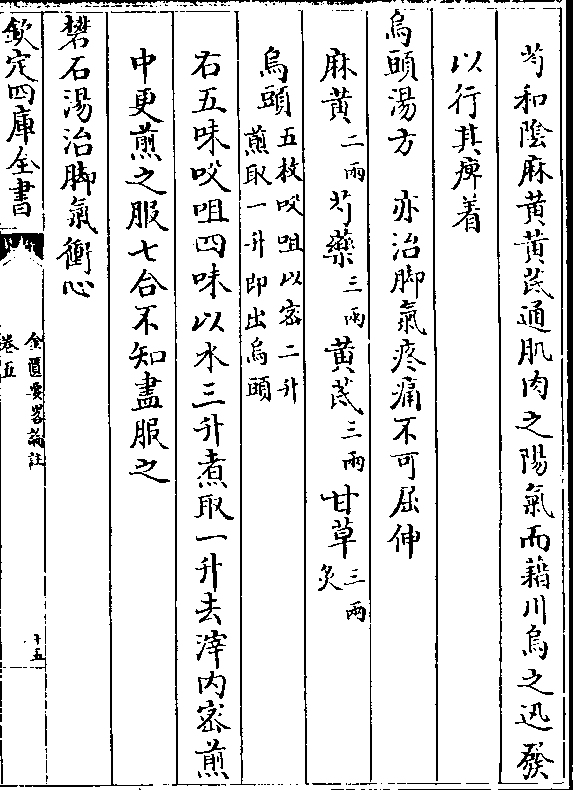 芍和陰麻黄黄茋通肌肉之陽氣而藉川烏之迅發
以行其痺着
烏頭湯方　亦治脚氣疼痛不可屈伸
麻黄二兩　芍藥三兩　黄茋三兩　甘草三兩炙
烏頭五枚㕮咀以宻二升煎取一升即出烏頭
右五味㕮咀四味以水三升煮取一升去滓内宻煎
中更煎之服七合不知盡服之
礬石湯治脚氣衝心
欽定四庫全書
金匱要畧論註
卷五
十五